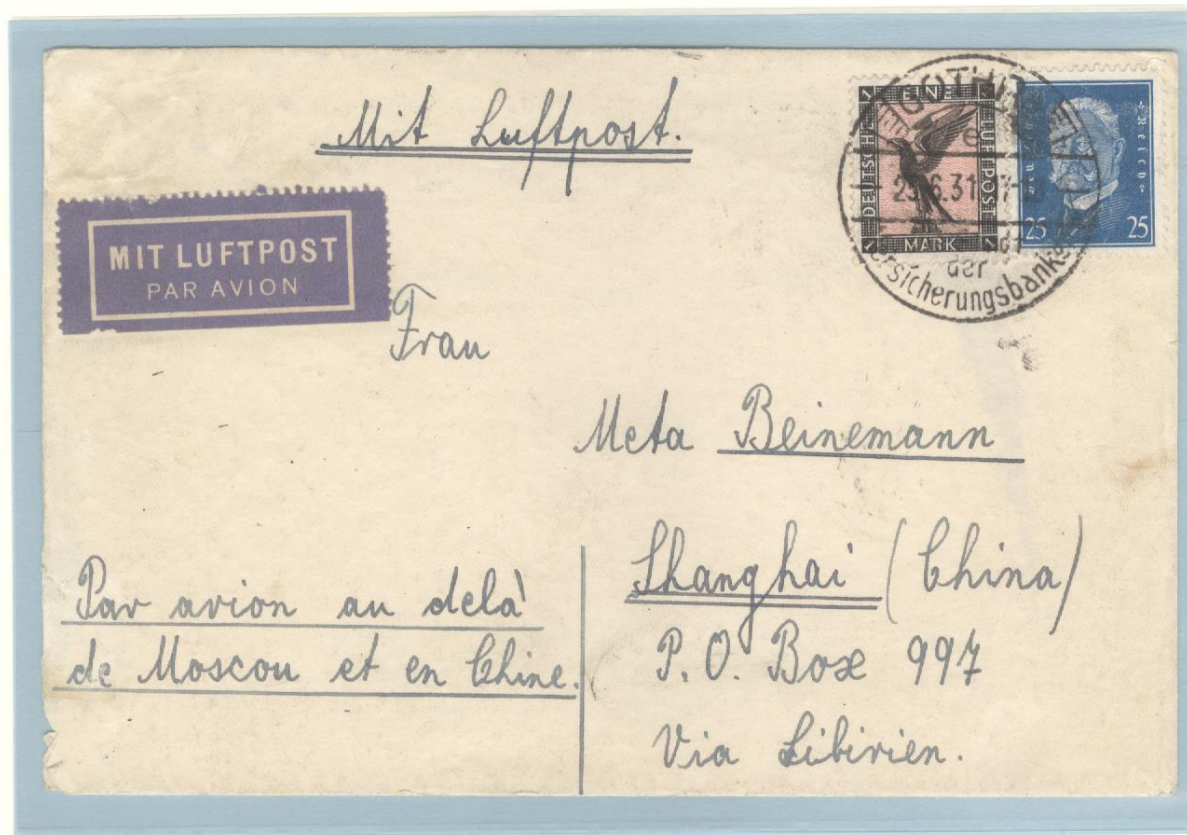 Mit Luftpost.
MIT LUFTPOST
PAR AVION
EINE
DEUTSCHE
LUFTPOST
1 MARK 1
25 25
6.31
der
sicherungsbank
Frau
Meta Beinemann
Shanghai (China)
P.O. Box 997
Via Sibirien.
Par avion au delà
de Moscou et en Chine.